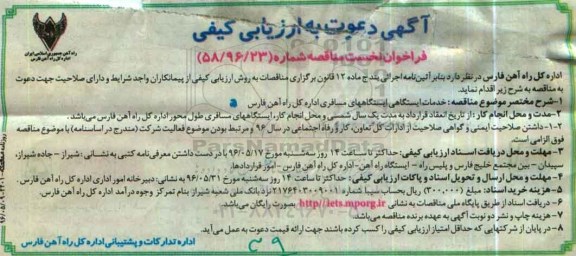 آگهی دعوت به ارزیابی کیفی
فراخوان نخست مناقصه شماره (۵۸/۹۶/۲۳)
راه آهن جمهوری اسلامی ایران
اداره کل راه آهن فارس
اداره کل راه آهن فارس در نظر دارد بنابر آئین‌نامه اجرائی بند ج ماده ۱۲ قانون برگزاری مناقصات به روش ارزیابی کیفی از پیمانکاران واجد شرایط و دارای صلاحیت جهت دعوت
به مناقصه به شرح زیر اقدام نماید.
۱-شرح مختصر موضوع مناقصه: خدمات ایستگاهی ایستگاههای مسافری اداره کل راه آهن فارس
۲-مدت و محل انجام کار: از تاریخ انعقاد قرارداد به مدت یک سال شمسی و محل انجام کار، ایستگاههای مسافری طول محور اداره کل راه آهن فارس می‌باشد.
۲-۱- داشتن صلاحیت ایمنی و گواهی صلاحیت از ادارات کل تعاون، کار و رفاه اجتماعی در سال ۹۶ و مرتبط بودن موضوع فعالیت شرکت (مندرج در اساسنامه) با موضوع مناقصه
فوق الزامی است.
۳- مهلت و محل دریافت اسناد ارزیابی کیفی: حداکثر تا ساعت ۱۴ روز سه‌شنبه مورخ ۹۶/۰۵/۱۷ با در دست داشتن معرفی‌نامه کتبی به نشانی: شیراز – جاده شیراز،
سپیدان – بین مجتمع خلیج فارس و پلیس راه – ایستگاه راه آهن – اداره کل راه آهن فارس – امور قراردادها.
۴- مهلت و محل ارسال و تحویل اسناد و پاکات ارزیابی کیفی: حداکثر تا ساعت ۱۴ روز سه‌شنبه مورخ ۹۶/۰۵/۳۱ به نشانی: دبیرخانه امور اداری اداره کل راه آهن فارس.
۵- هزینه خرید اسناد: مبلغ (۳۰۰.۰۰۰) ریال بحساب شماره ۲۱۷۶۴۰۳۰۰۹۰۰۱ نزد بانک ملی شعبه شیراز بنام تمرکز وجوه درآمد اداره کل راه آهن فارس.
۶- دریافت اسناد از طریق پایگاه ملی مناقصات به نشانی http://iets.mporg.ir بصورت رایگان می‌باشد.
۷- هزینه چاپ و نشر دو نوبت آگهی به عهده برنده مناقصه می‌باشد.
۸- در پایان از شرکتهایی که حداقل امتیاز ارزیابی کیفی را کسب کرده باشند جهت ارائه قیمت دعوت به عمل می‌آید.
اداره تدارکات و پشتیبانی اداره کل راه آهن فارس